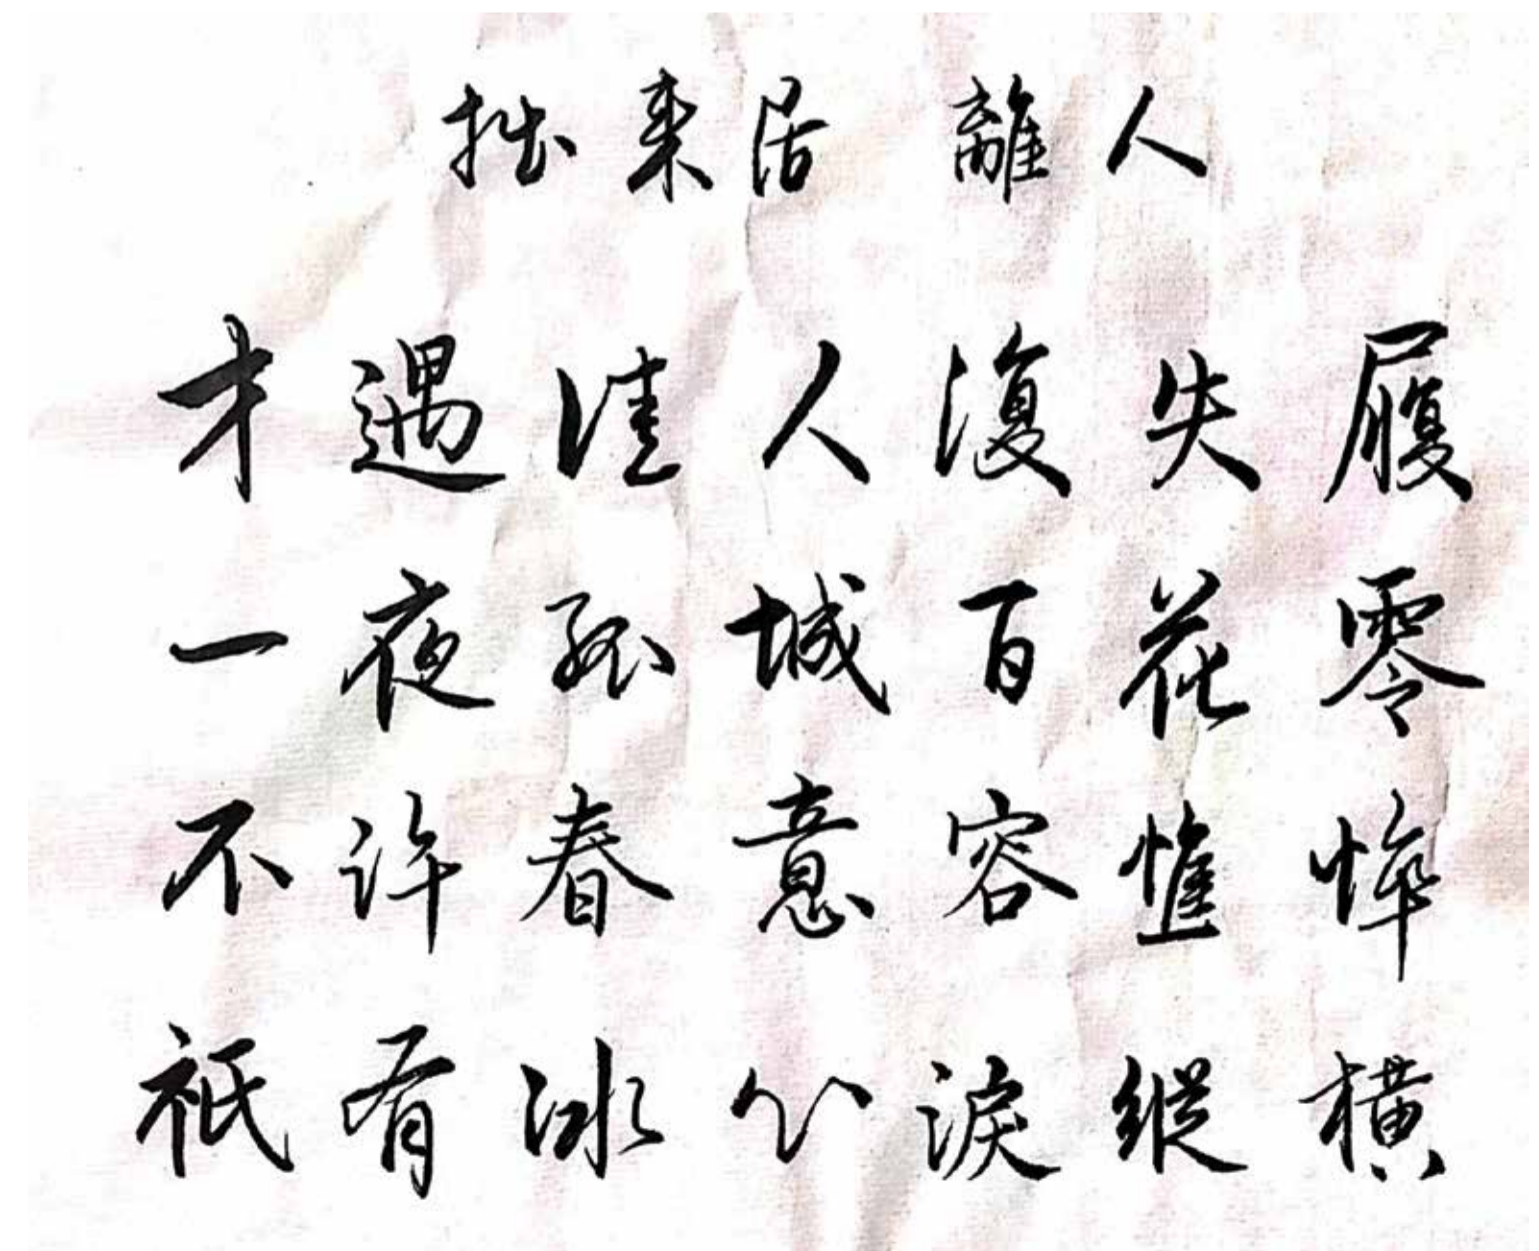 拙来居 離人
才遇佳人復失履
一夜孤城百花零
不許春意容憔悴
祇有冰心淚縱橫